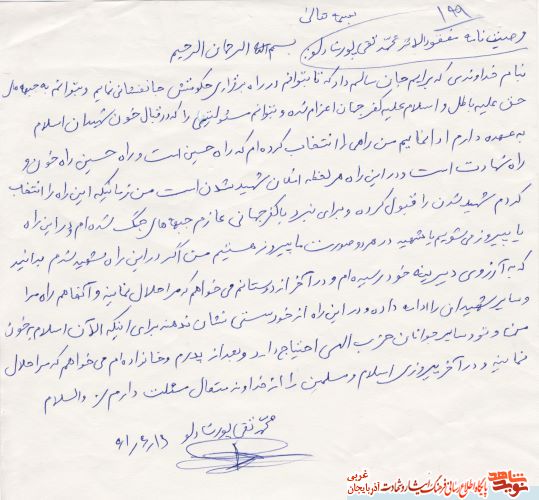 بسمه تعالی
۱۹۹
وصیت نامه مفقود الاثر محمد تقی پورشادلو
بسم الله الرحمان الرحیم
بنام خداوندی که برایم جان سالم داد که تا بتوانم در راه برقراری حکومتش جانفشانی نمایم و بتوانم به جبهه های
حق علیه باطل و اسلام علیه کفر جهان اعزام شده و بتوانم مسئولیتی را که در قبال خون شهیدان اسلام
به عهده دارم ادا نمایم من راهی را انتخاب کرده ام که راه حسین است و راه حسین راه خون و
راه شهادت است و در این راه هر لحظه امکان شهید شدن است من زمانیکه این راه را انتخاب
کردم شهید شدن را قبول کرده و برای نبرد با کفر جهانی عازم جبهه های جنگ شده ام در این راه
یا پیروز می شویم یا شهید در هر دو صورت ما پیروز هستیم من اگر در این راه شهید شدم بدانید
که به آرزوی دیرینه خود رسیده ام و در آخر از دوستانم می خواهم که مرا حلال نمایند و آنها هم راه مرا
و سایر شهیدان را ادامه داده و در این راه از خود سستی نشان ندهند برای اینکه الآن اسلام به خون
من و تو و سایر جوانان حزب الهی احتیاج دارد و بعد از پدرم و خانواده ام می خواهم که مرا حلال
نمایند و در آخر پیروزی اسلام و مسلمین را از خداوند متعال مسئلت دارم والسلام
محمد تقی پورشادلو
نوید شاهد
پایگاه اطلاع رسانی فرهنگ ایثار و شهادت آذربایجان غربی